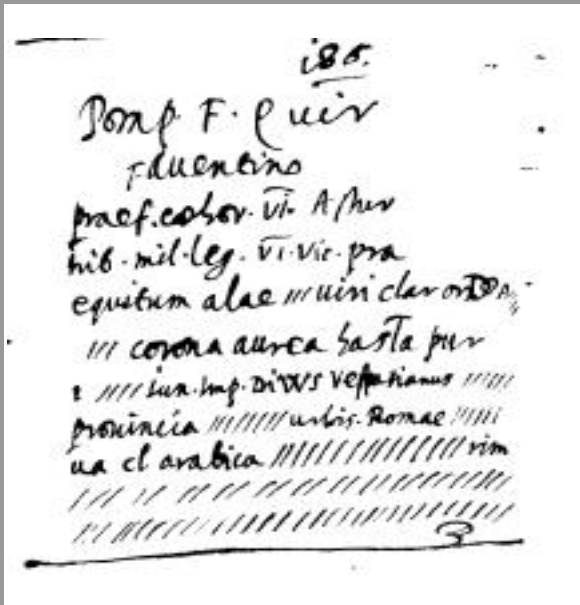 186.
Pomp. F. Quir
Faventino
praef. cohor. VI. Astur
trib. mil. leg. VI. Vic. pra
equitum alae /// uiri claror
/// corona aurea hasta pur
//// iun. imp. Divus Vespasianus /////
prouincia /////// urbis. Romae /////
ua cl arabica ///////////// rim